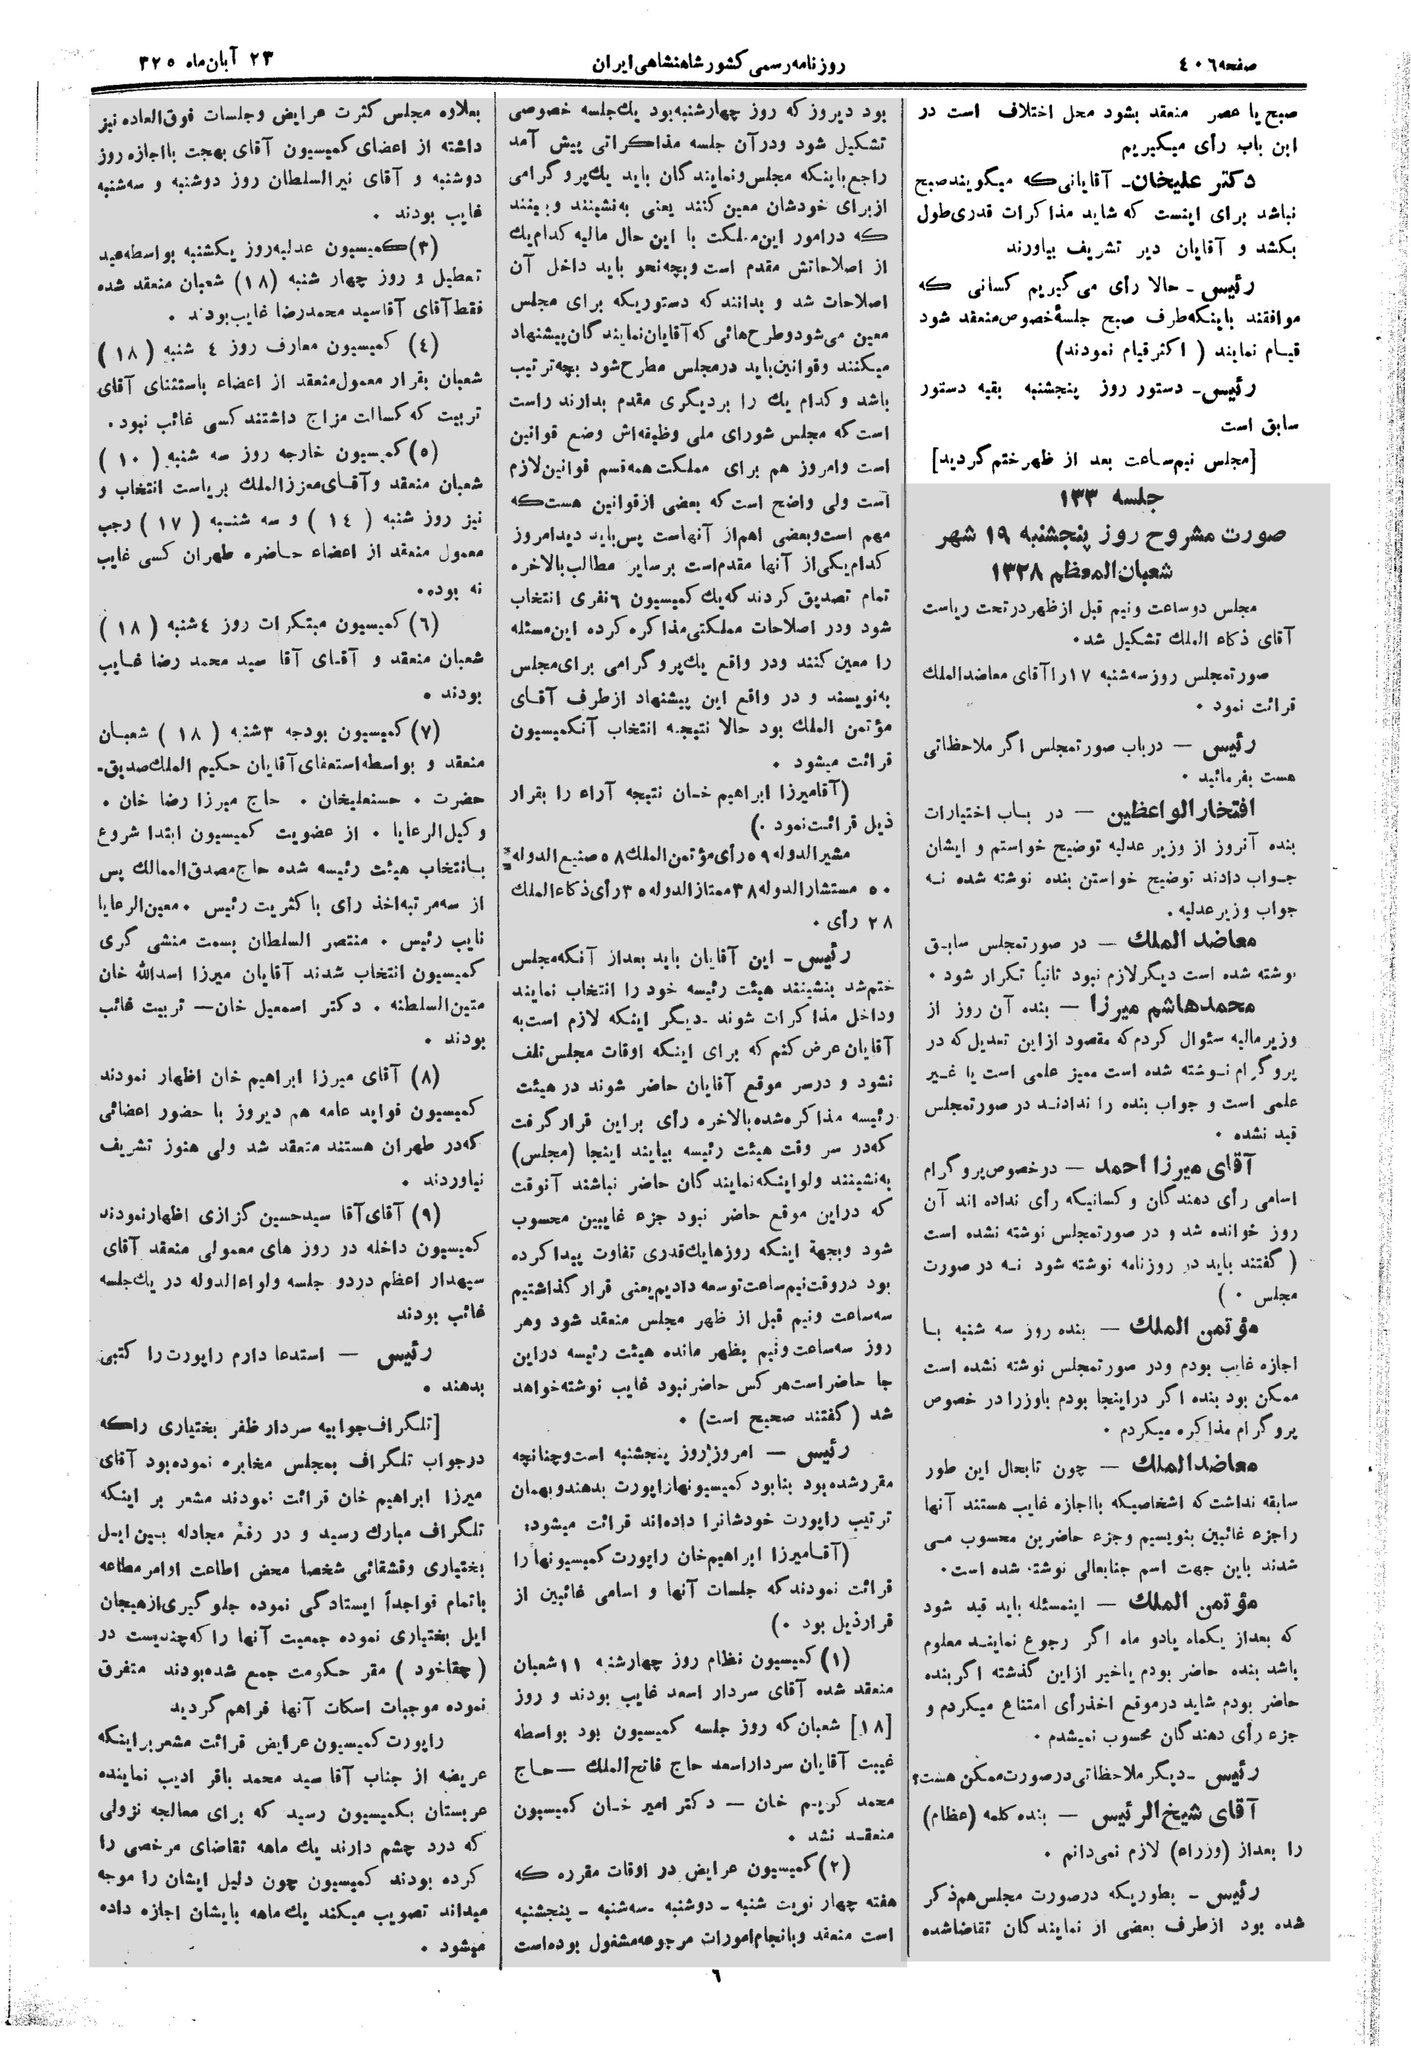 صفحه ۴۰۶
روزنامه رسمی کشور شاهنشاهی ایران
۲۳ آبان ماه ۳۲۵
صبح یا عصر منعقد بشود محل اختلاف است در
این باب رأی میگیریم
دکتر علیخان- آقایانی که میگویند صبح
نباشد برای اینست که شاید مذاکرات قدری طول
بکشد و آقایان دیر تشریف بیاورند
رئیس- حالا رأی می گیریم کسانی که
موافقند باینکه طرف صبح جلسهٔ خصوص منعقد شود
قیام نمایند ( اکثر قیام نمودند)
رئیس- دستور روز پنجشنبه بقیه دستور
سابق است
[مجلس نیم ساعت بعد از ظهر ختم گردید]
جلسه ۱۳۳
صورت مشروح روز پنجشنبه ۱۹ شهر
شعبان المعظم ۱۳۲۸
مجلس دو ساعت و نیم قبل از ظهر در تحت ریاست
آقای ذکاء الملك تشکیل شد۰
صورتمجلس روز سه شنبه ۱۷ را آقای معاضدالملك
قرائت نمود ۰
رئیس — درباب صورتمجلس اگر ملاحظاتی
هست بفرمائید ۰
افتخارالواعظین — در باب اختیارات
بنده آنروز از وزیر عدلیه توضیح خواستم و ایشان
جواب دادند توضیح خواستن بنده نوشته شده نه
جواب وزیر عدلیه ۰
معاضد الملك — در صورتمجلس سابق
نوشته شده است دیگر لازم نبود ثانیاً تکرار شود ۰
محمد هاشم میرزا — بنده آن روز از
وزیر مالیه سئوال کردم که مقصود از این تعدیل که در
پروگرام نوشته شده است ممیز علمی است یا غیر
علمی است و جواب بنده را ندادند در صورتمجلس
قید نشده ۰
آقای میرزا احمد — در خصوص پروگرام
اسامی رأی دهندگان و کسانیکه رأی نداده اند آن
روز خوانده شد و در صورتمجلس نوشته نشده است
( گفتند باید در روزنامه نوشته شود نه در صورت
مجلس ۰ )
مؤتمن الملك — بنده روز سه شنبه با
اجازه غایب بودم ودر صورتمجلس نوشته نشده است
ممکن بود بنده اگر دراینجا بودم باوزرا در خصوص
پروگرام مذاکره میکردم ۰
معاضدالملك — چون تابحال این طور
سابقه نداشت که اشخاصیکه بااجازه غایب هستند آنها
راجزء غائبین بنویسیم وجزء حاضرین محسوب می
شدند باین جهت اسم جنابعالی نوشته شده است۰
مؤتمن الملك — اینمسئله باید قید شود
که بعداز یکماه یادو ماه اگر رجوع نمایند معلوم
باشد بنده حاضر بودم یاخیر ازاین گذشته اگر بنده
حاضر بودم شاید درموقع اخذ رأی امتناع میکردم و
جزء رأی دهندگان محسوب نمیشدم ۰
رئیس -دیگر ملاحظاتی در صورت ممکن هست؟
آقای شیخ الرئیس — بنده کلمه (عظام)
را بعداز (وزراء) لازم نمی دانم ۰
رئیس - بطوریکه در صورت مجلس هم ذکر
شده بود از طرف بعضی از نمایندگان تقاضا شده
بود دیروز که روز چهارشنبه بود یك جلسه خصوصی
تشکیل شود ودرآن جلسه مذاکراتی پیش آمد
راجع باینکه مجلس ونمایندگان باید یك پروگرامی
از برای خودشان معین کنند یعنی به نشینند و ببینند
که درامور این مملکت با این حال مالیه کدام یك
از اصلاحاتش مقدم است و بچه نحو باید داخل آن
اصلاحات شد و بدانند که دستوریکه برای مجلس
معین می شود و طرح هائی که آقایان نمایندگان پیشنهاد
میکنند و قوانین باید درمجلس مطرح شود بچه ترتیب
باشد و کدام یك را بردیگری مقدم بدارند راست
است که مجلس شورای ملی وظیفه اش وضع قوانین
است وامروز هم برای مملکت همه قسم قوانین لازم
است ولی واضح است که بعضی از قوانین هست که
مهم است و بعضی اهم از آنهاست پس باید دید امروز
کدام یکی از آنها مقدم است بر سایر مطالب بالاخره
تمام تصدیق کردند که یك کمیسیون ۶ نفری انتخاب
شود ودر اصلاحات مملکتی مذاکره کرده این مسئله
را معین کنند ودر واقع یك پروگرامی برای مجلس
به نویسند و در واقع این پیشنهاد از طرف آقای
مؤتمن الملك بود حالا نتیجه انتخاب آنکمیسیون
قرائت میشود ۰
(آقامیرزا ابراهیم خان نتیجه آراء را بقرار
ذیل قرائت نمود ۰)
مشیرالدوله ۵۹ رأی مؤتمن الملك ۵۸ صنیع الدوله
۵۰ مستشارالدوله ۳۸ ممتازالدوله ۳۵ رأی ذکاءالملك
۲۸ رأی ۰
رئیس- این آقایان باید بعداز آنکه مجلس
ختم شد بنشینند هیئت رئیسه خود را انتخاب نمایند
وداخل مذاکرات شوند -دیگر اینکه لازم است به
آقایان عرض کنم که برای اینکه اوقات مجلس تلف
نشود و درسر موقع آقایان حاضر شوند در هیئت
رئیسه مذاکره شده بالاخره رأی براین قرار گرفت
که در سر وقت هیئت رئیسه بیایند اینجا (مجلس)
به نشینند ولو اینکه نمایندگان حاضر نباشند آنوقت
که دراین موقع حاضر نبود جزء غایبین محسوب
شود و بجهة اینکه روزها یك قدری تفاوت پیدا کرده
بود دروقت نیم ساعت توسعه دادیم یعنی قرار گذاشتیم
سه ساعت ونیم قبل از ظهر مجلس منعقد شود وهر
روز سه ساعت ونیم بظهر مانده هیئت رئیسه دراین
جا حاضر است هر کس حاضر نبود غایب نوشته خواهد
شد ( گفتند صحیح است) ۰
رئیس — امروز روز پنجشنبه است و چنانچه
مقرر شده بود بنابود کمیسیونها راپورت بدهند و بهمان
ترتیب راپورت خودشانرا داده اند قرائت میشود:
(آقامیرزا ابراهیم خان راپورت کمیسیونها را
قرائت نمودند که جلسات آنها و اسامی غائبین از
قرار ذیل بود ۰)
(۱) کمیسیون نظام روز چهارشنبه ۱۱ شعبان
منعقد شده آقای سردار اسعد غایب بودند و روز
[۱۸] شعبان که روز جلسه کمیسیون بود بواسطه
غیبت آقایان سردار اسعد حاج فاتح الملك — حاج
محمد کریم خان — دکتر امیر خان کمیسیون
منعقد نشد ۰
(۲) کمیسیون عرایض در اوقات مقرره که
هفته چهار نوبت شنبه - دوشنبه - سه شنبه - پنجشنبه
است منعقد و بانجام امورات مرجوعه مشغول بوده است
بعلاوه مجلس کثرت عرایض وجلسات فوق العاده نیز
داشته از اعضای کمیسیون آقای بهجت بااجازه روز
دوشنبه و آقای نیرالسلطان روز دوشنبه و سه شنبه
غایب بودند ۰
(۳) کمیسیون عدلیه روز یکشنبه بواسطه عید
تعطیل و روز چهار شنبه (۱۸) شعبان منعقد شده
فقط آقای آقاسید محمدرضا غایب بودند ۰
(۴) کمیسیون معارف روز ۴ شنبه (۱۸ )
شعبان بقرار معمول منعقد از اعضاء باستثنای آقای
تربیت که کسالت مزاج داشتند کسی غائب نبود.
(۵) کمیسیون خارجه روز سه شنبه (۱۰ )
شعبان منعقد و آقای معزز الملك بریاست انتخاب و
نیز روز شنبه (۱۴ ) و سه شنبه (۱۷ ) رجب
معمول منعقد از اعضاء حاضره طهران کسی غایب
نه بوده۰
(۶) کمیسیون مبتکرات روز ۴ شنبه (۱۸ )
شعبان منعقد و آقای آقا سید محمد رضا غایب
بودند ۰
(۷) کمیسیون بودجه ۳ شنبه (۱۸ ) شعبان
منعقد و بواسطه استعفای آقایان حکیم الملك صدیق-
حضرت ۰ حسنعلیخان ۰ حاج میرزا رضا خان ۰
وکیل الرعایا ۰ از عضویت کمیسیون ابتدا شروع
بانتخاب هیئت رئیسه شده حاج مصدق الممالك پس
از سه مرتبه اخذ رأی با کثریت رئیس ۰ معین الرعایا
نایب رئیس ۰ منتصر السلطان بسمت منشی گری
کمیسیون انتخاب شدند آقایان میرزا اسدالله خان
متین السلطنه ۰ دکتر اسمعیل خان— تربیت غائب
بودند ۰
(۸) آقای میرزا ابراهیم خان اظهار نمودند
کمیسیون فواید عامه هم دیروز با حضور اعضائی
که در طهران هستند منعقد شد ولی هنوز تشریف
نیاوردند ۰
(۹) آقای آقا سید حسین گزازی اظهار نمودند
کمیسیون داخله در روز های معمولی منعقد آقای
سپهدار اعظم در دو جلسه ولواءالدوله در یك جلسه
غائب بودند
رئیس — استدعا دارم راپورت را کتبی
بدهند ۰
[تلگراف جوابیه سردار ظفر بختیاری را که
در جواب تلگراف بمجلس مخابره نموده بود آقای
میرزا ابراهیم خان قرائت نمودند مشعر بر اینکه
تلگراف مبارك رسید و در رفع مجادله بین ایل
بختیاری و قشقائی شخصا محض اطاعت اوامر مطاعه
باتمام قواجداً ایستادگی نموده جلوگیری از هیجان
ایل بختیاری نموده جمعیت آنها را که چندیست در
( چقاخود ) مقر حکومت جمع شده بودند متفرق
نموده موجبات اسکات آنها فراهم گردید
راپورت کمیسیون عرایض قرائت مشعر براینکه
عریضه از جناب آقا سید محمد باقر ادیب نماینده
عربستان بکمیسیون رسید که برای معالجه نزولی
که درد چشم دارند یك ماهه تقاضای مرخصی را
کرده بودند کمیسیون چون دلیل ایشان را موجه
میداند تصویب میکند یك ماهه بایشان اجازه داده
میشود ۰
۶